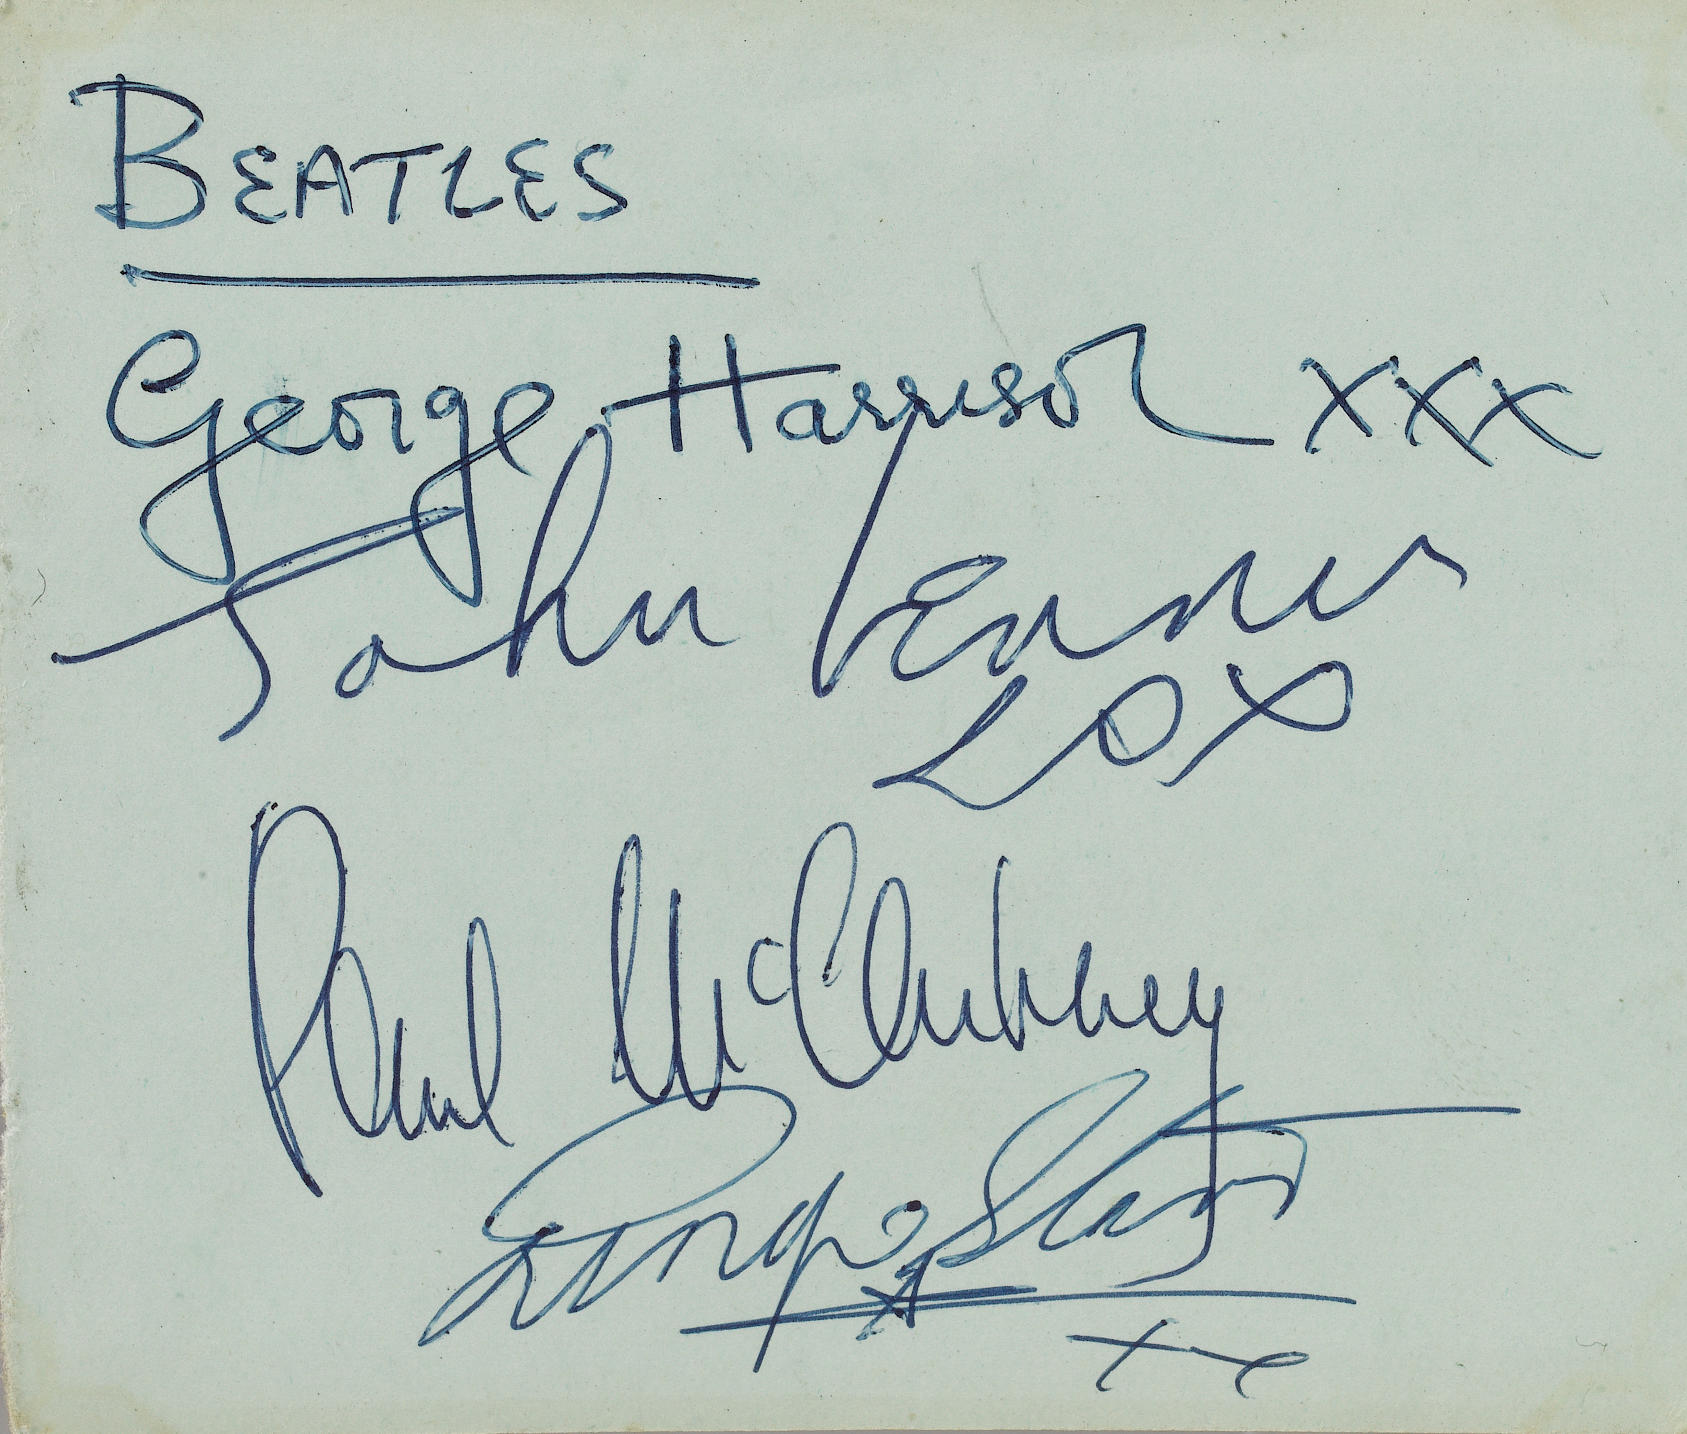 BEATLES
George Harrison xxx
John Lennon
LOX
Paul McCartney
Ringo Starr
xx